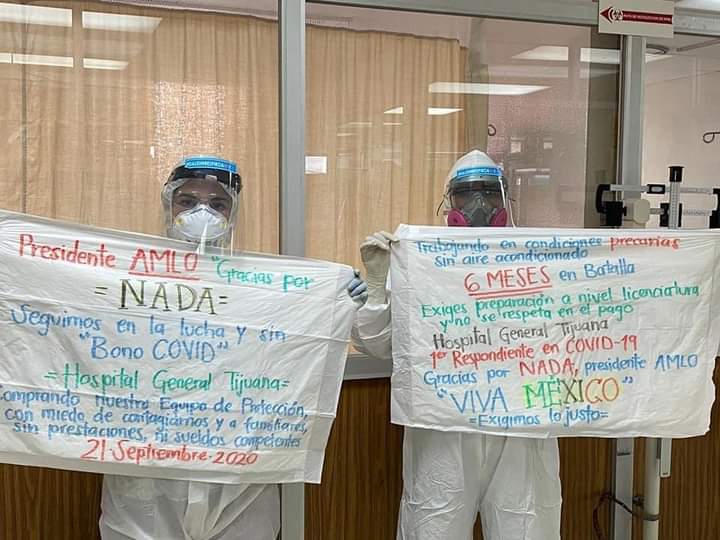 Presidente AMLO "Gracias por
=NADA=
Seguimos en la lucha y sin
"Bono COVID"
=Hospital General Tijuana=
Comprando Nuestro Equipo de Protección,
con miedo de contagiarnos y a familiares,
sin prestaciones, ni sueldos competentes
21-Septiembre-2020
Trabajando en condiciones precarias
sin aire acondicionado
6 MESES en Batalla
Exiges preparación a nivel licenciatura
y no se respeta en el pago
Hospital General Tijuana
1er Respondiente en COVID-19
Gracias por NADA, presidente AMLO
"VIVA MÉXICO"
=Exigimos lo justo=